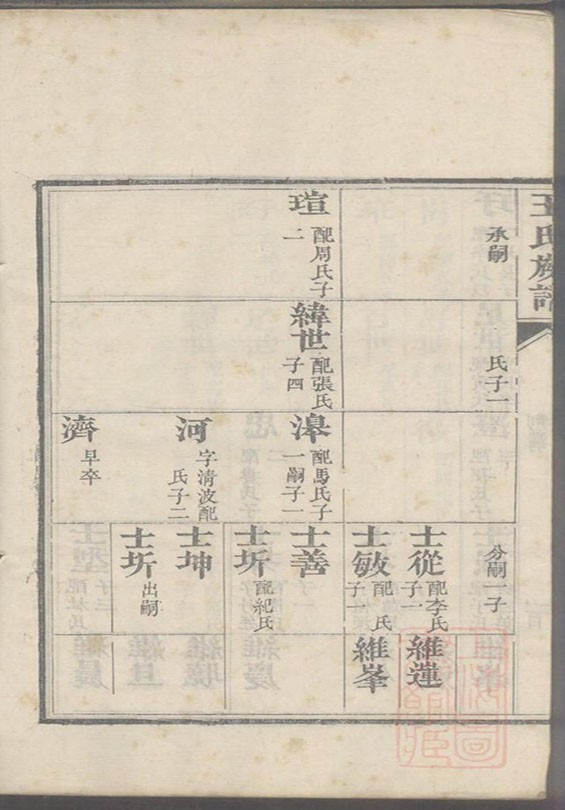 王氏族譜
承嗣
氏子一
分嗣一子
瑄
配周氏子
二
緯世
配張氏
子四
滜
配馬氏子
一嗣子一
河
字清波配
氏子二
濟
早卒
士從
配李氏
子一
士敏
配 氏
子一
士善
士圻
配紀氏
士坤
士圻
出嗣
維蓮
維峯